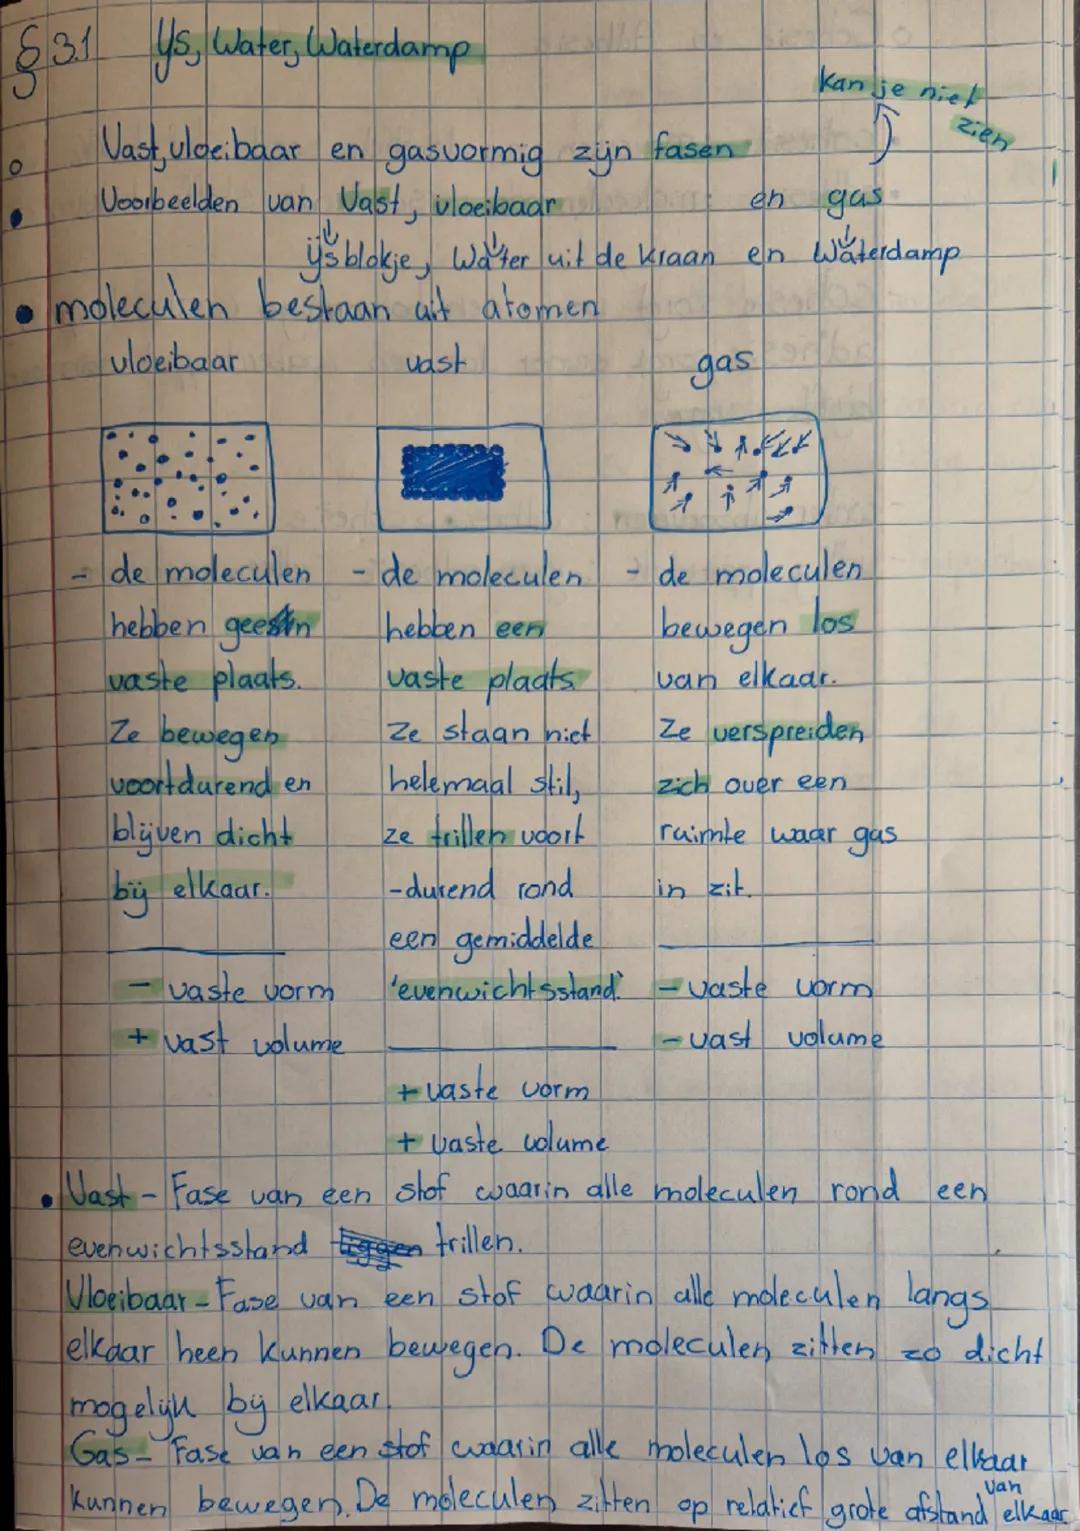 § 3.1 Ys, Water, Waterdamp
Kan je niet
zien
Vast, vloeibaar en gasvormig zijn fasen
Voorbeelden van Vast, vloeibaar en gas
ijsblokje, Water uit de kraan en Waterdamp
moleculen bestaan uit atomen
vloeibaar vast gas
- de moleculen
hebben geen
vaste plaats.
Ze bewegen
voortdurend en
blijven dicht
bij elkaar.
- vaste vorm
+ vast volume
- de moleculen
hebben een
vaste plaats
Ze staan niet
helemaal stil,
ze trillen voort
-durend rond
een gemiddelde
'evenwichtsstand'
+ vaste vorm
+ vaste volume
- de moleculen
bewegen los
van elkaar.
Ze verspreiden
zich over een
ruimte waar gas
in zit.
- vaste vorm
- vast volume
Vast - Fase van een stof waarin alle moleculen rond een
evenwichtsstand trillen.
Vloeibaar - Fase van een stof waarin alle moleculen langs
elkaar heen kunnen bewegen. De moleculen zitten zo dicht
mogelijk bij elkaar.
Gas - Fase van een stof waarin alle moleculen los van elkaar
kunnen bewegen. De moleculen zitten op relatief grote afstand van elkaar